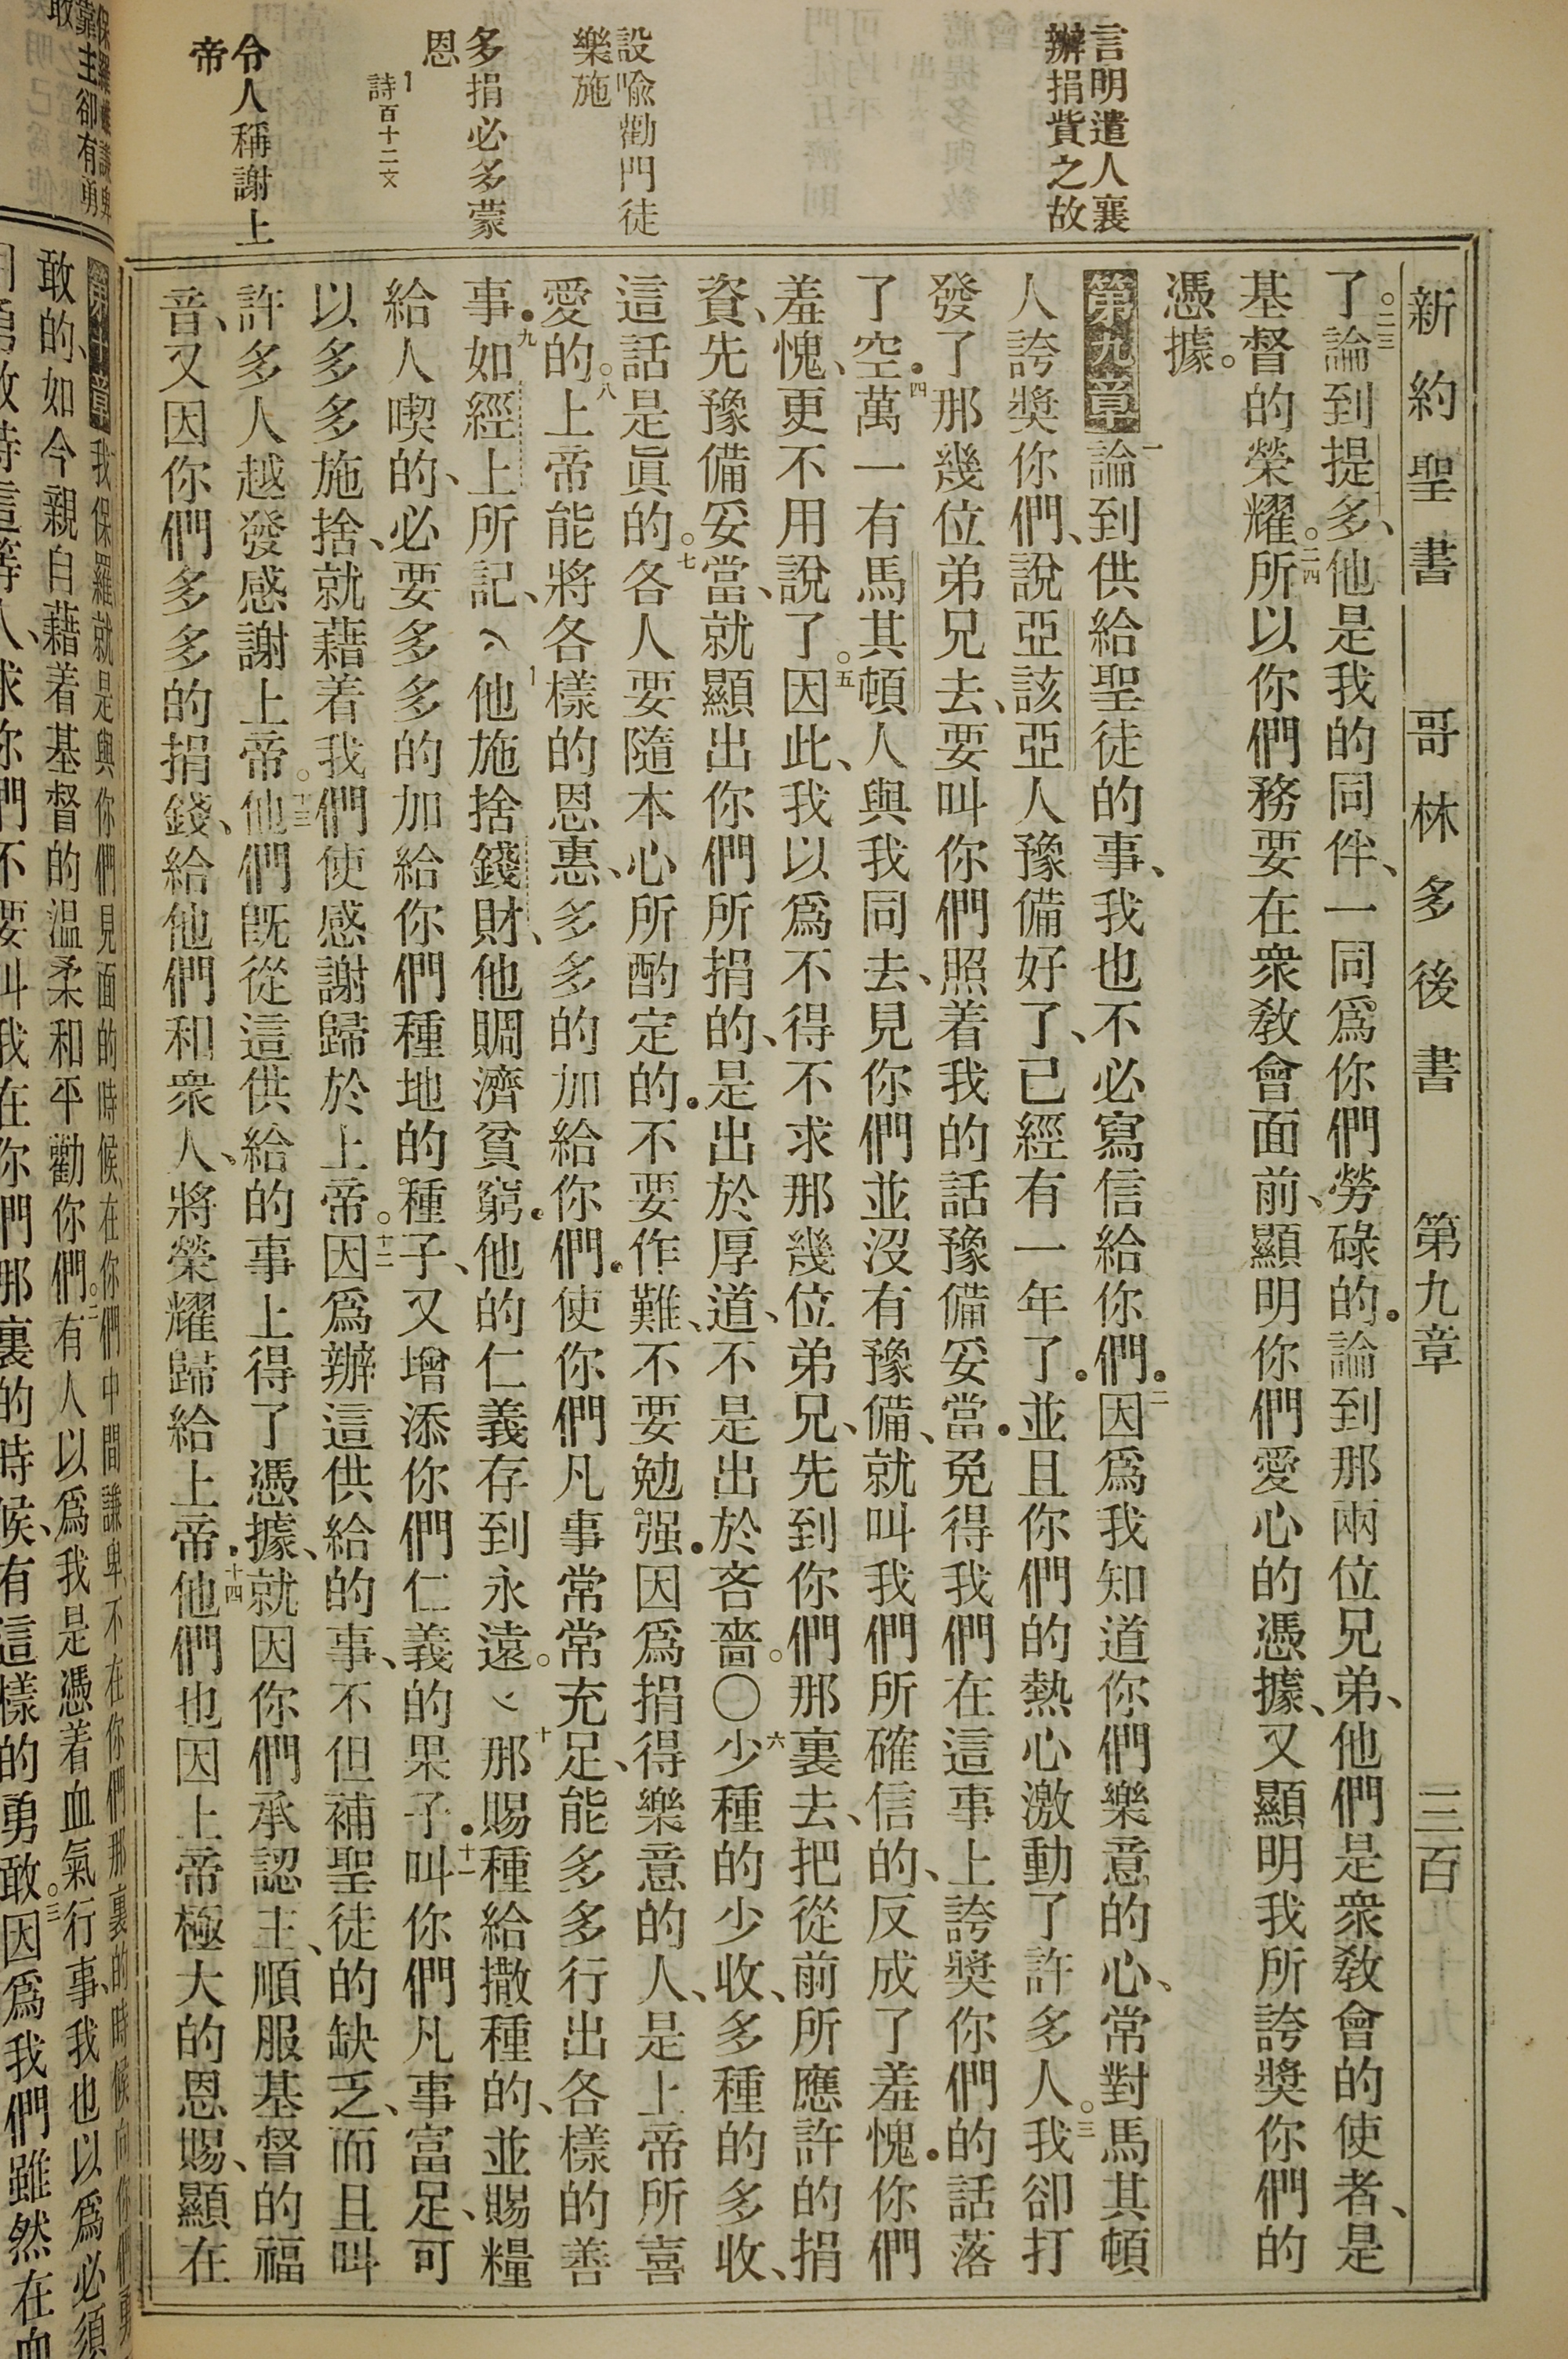 新約聖書 哥林多後書 第九章 三百
言明遣人襄
辦捐貲之故
設喩勸門徒
樂施
多捐必多蒙
恩
詩百十二文
令人稱謝上
帝
了。二三論到提多、他是我的同伴、一同爲你們勞碌的．論到那兩位兄弟、他們是衆敎會的使者、是
基督的榮耀。二四所以你們務要在衆敎會面前、顯明你們愛心的憑據、又顯明我所誇奬你們的
憑據。
第九章 一論到供給聖徒的事、我也不必寫信給你們．二因爲我知道你們樂意的心、常對馬其頓
人誇奬你們、說亞該亞人豫備好了、已經有一年了．並且你們的熱心激動了許多人。三我卻打
發了那幾位弟兄去、要叫你們照着我的話豫備妥當．免得我們在這事上誇奬你們的話落
了空．四萬一有馬其頓人與我同去、見你們並沒有豫備、就叫我們所確信的、反成了羞愧．你們
羞愧、更不用說了。五因此、我以爲不得不求那幾位弟兄、先到你們那裏去、把從前所應許的捐
資、先豫備妥當、就顯出你們所捐的、是出於厚道、不是出於吝嗇。〇六少種的少收、多種的多收、
這話是眞的。七各人要隨本心所酌定的．不要作難、不要勉强．因爲捐得樂意的人、是上帝所喜
愛的。八上帝能將各樣的恩惠、多多的加給你們．使你們凡事常常充足、能多多行出各樣的善
事．九如經上所記、他施捨錢財、他賙濟貧窮．他的仁義存到永遠。十那賜種給撒種的、並賜糧
給人喫的、必要多多的加給你們種地的種子、又增添你們仁義的果子．十一叫你們凡事富足、可
以多多施捨、就藉着我們使感謝歸於上帝。十二因爲辦這供給的事、不但補聖徒的缺乏、而且叫
許多人越發感謝上帝。十三他們旣從這供給的事上得了憑據、就因你們承認主、順服基督的福
音、又因你們多多的捐錢、給他們和衆人、將榮耀歸給上帝．十四他們也因上帝極大的恩賜、顯在
靠主卻有勇
敢
第十章 我保羅就是與你們見面的時候、在你們中間謙卑、不在你們那裏的時候、向你們勇
敢的、如今親自藉着基督的溫柔和平勸你們。二有人以爲我是憑着血氣行事、我也以爲必須
用勇敢待這等人、求你們不要叫我在你們那裏的時候、有這樣的勇敢。三因爲我們雖然在血